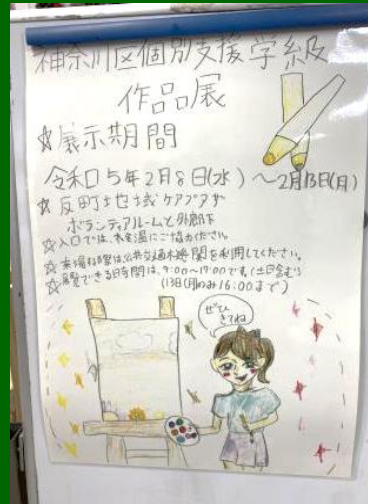 神奈川区個別支援学級
作品展
☆展示期間
令和5年2月8日(水)～2月13日(月)
☆反町地域ケアプラザ
ボランティアルームと外廊下
☆入口では、検温にご協力ください。
☆来場の際は公共交通機関を利用してください。
☆展覧できる日時間は、9:00～17:00です。(土日含む)
(13日(月)のみ16:00まで)
ぜひ
きてね